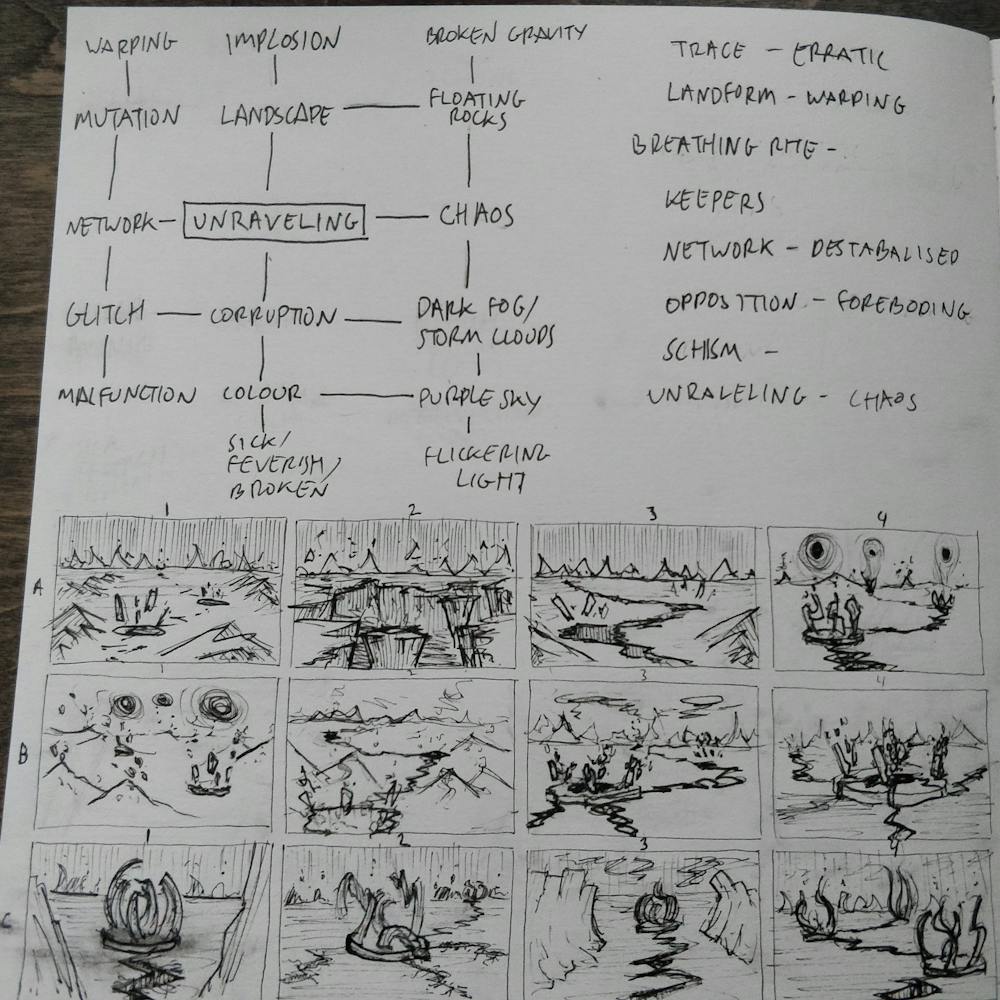 WARPING IMPLOSION BROKEN GRAVITY
MUTATION LANDSCAPE FLOATING
ROCKS
NETWORK UNRAVELING CHAOS
GLITCH CORRUPTION DARK FOG/
STORM CLOUDS
MALFUNCTION COLOUR PURPLE SKY
SICK/
FEVERISH/
BROKEN
FLICKERING
LIGHT
TRACE - ERRATIC
LANDFORM - WARPING
BREATHING RITE -
KEEPERS
NETWORK - DESTABALISED
OPPOSITION - FOREBODING
SCHISM -
UNRALELING - CHAOS
1 2 3 4
A
1 2 3 4
B
1 2 3 4
C